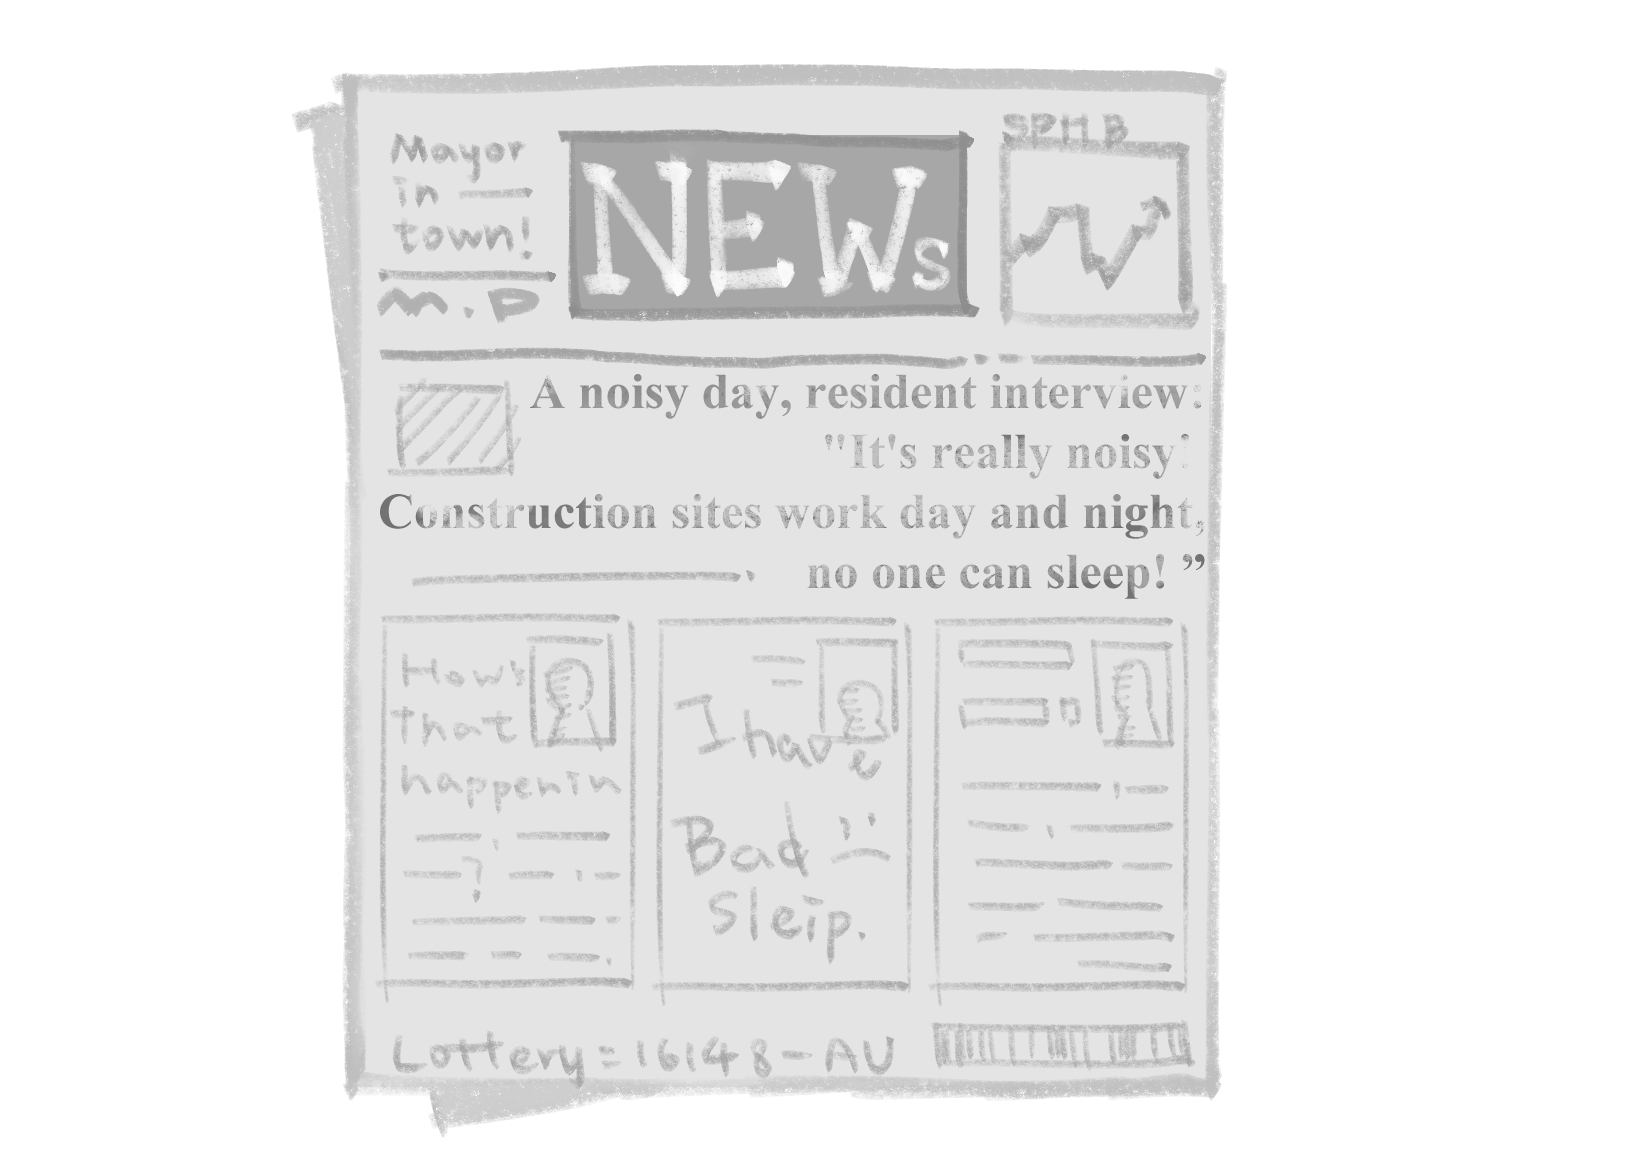 Mayor
in
town!
M.P
NEWs
SPH.B
A noisy day, resident interview:
"It's really noisy!
Construction sites work day and night,
no one can sleep! ”
How's
that
happenin
?
I have
Bad
Sleip.
Lottery=16148-AU